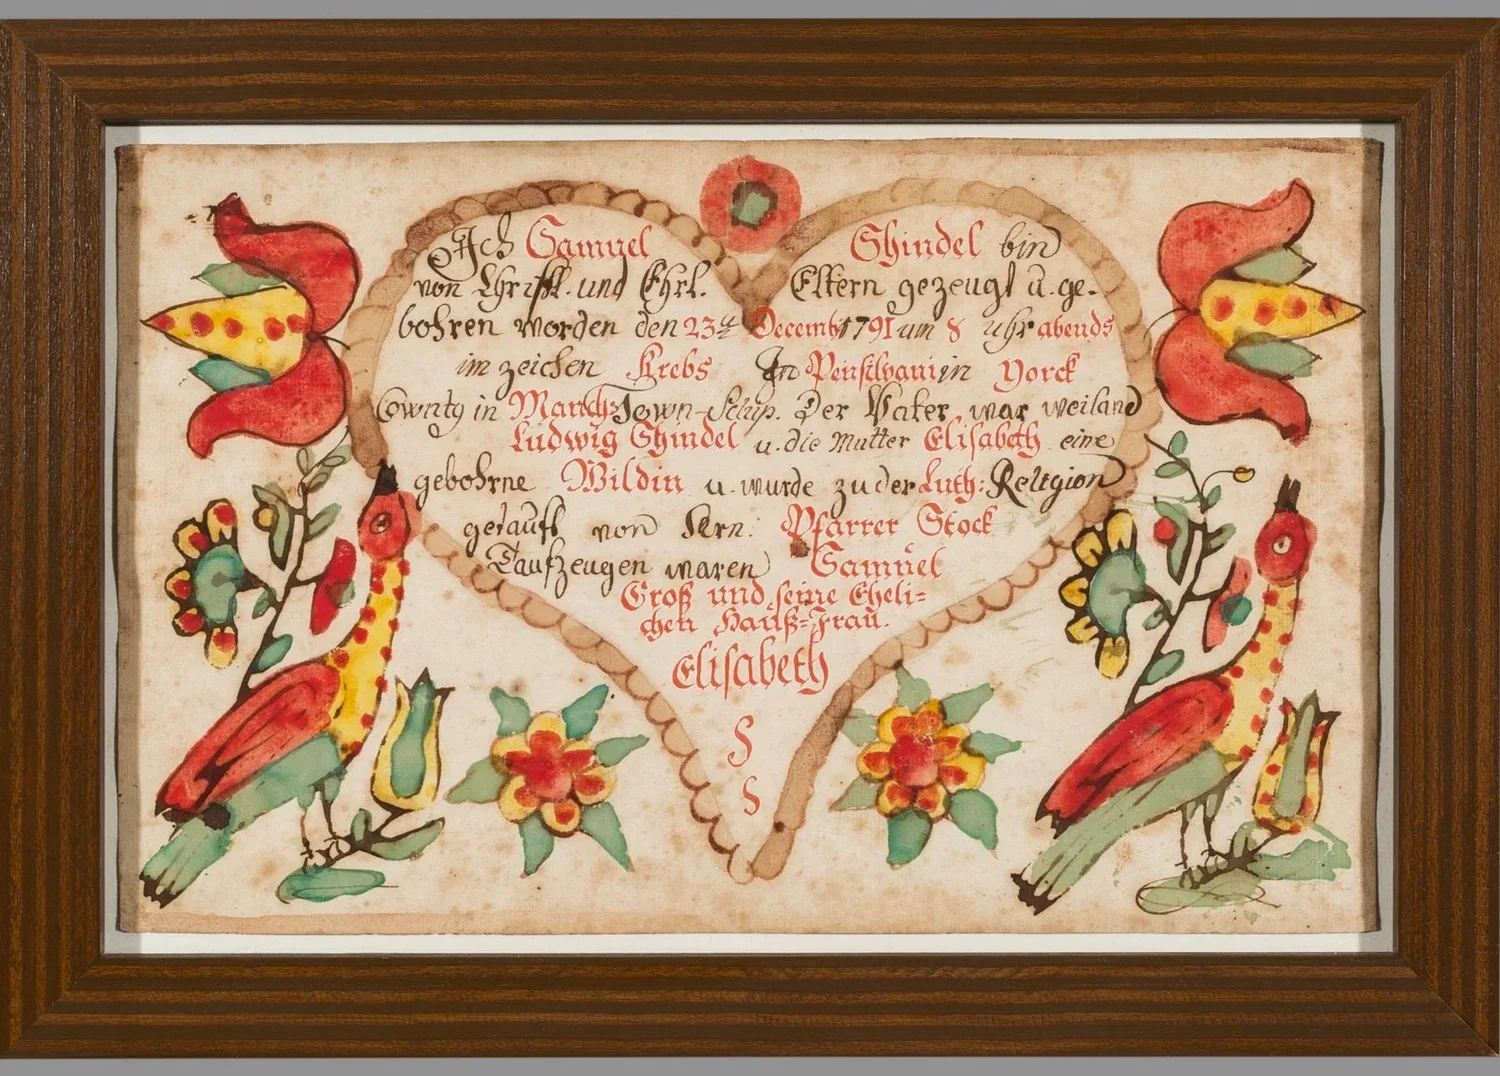 Ich Samuel Shindel bin
von Christl. und Ehrl. Eltern gezeugt u. ge-
bohren worden den 23t Decemb 1791 um 8 uhr abends
im zeichen Krebs In Pensilvaniin Yorck
Cownty in Manch: Town-Schip. Der Vater war weiland
Ludwig Shindel u. die Mutter Elisabeth eine
gebohrne Wildin u. wurde zu der Luth: Religion
getauft von Hrn. Pfarrer Stock
Taufzeugen waren Samuel
Groß und seine Eheli=
chen Hauß=Frau.
Elisabeth
S
S